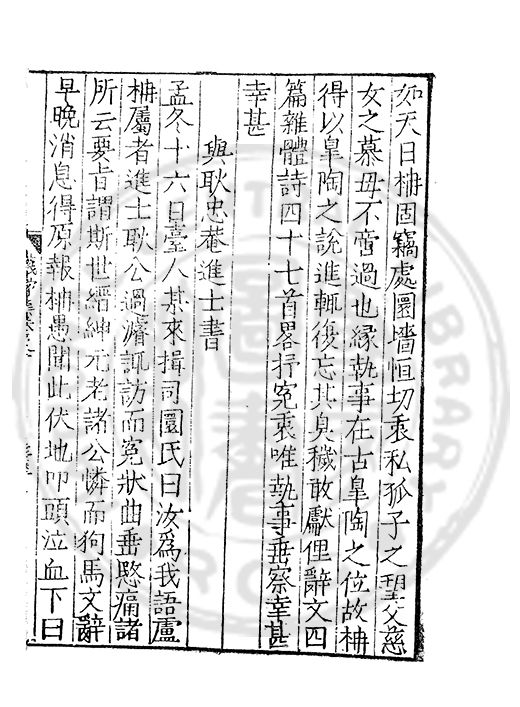 如天日柟固竊處圜墻恒切衷私孤子之望父慈
女之慕母不啻過也緣執事在古臯陶之位故柟
得以臯陶之說進輒復忘其臭穢敢獻俚辭文四
篇雜體詩四十七首畧抒寃衷唯執事垂察幸甚
幸甚
與耿忠菴進士書
孟冬十六日臺人某來揖司圜氏曰汝爲我語盧
柟屬者進士耿公過濬諏訪而寃狀曲垂愍痛諸
所云要旨謂斯世縉紳元老諸公憐而狗馬文辭
早晚消息得原報柟愚聞此伏地叩頭泣血下曰